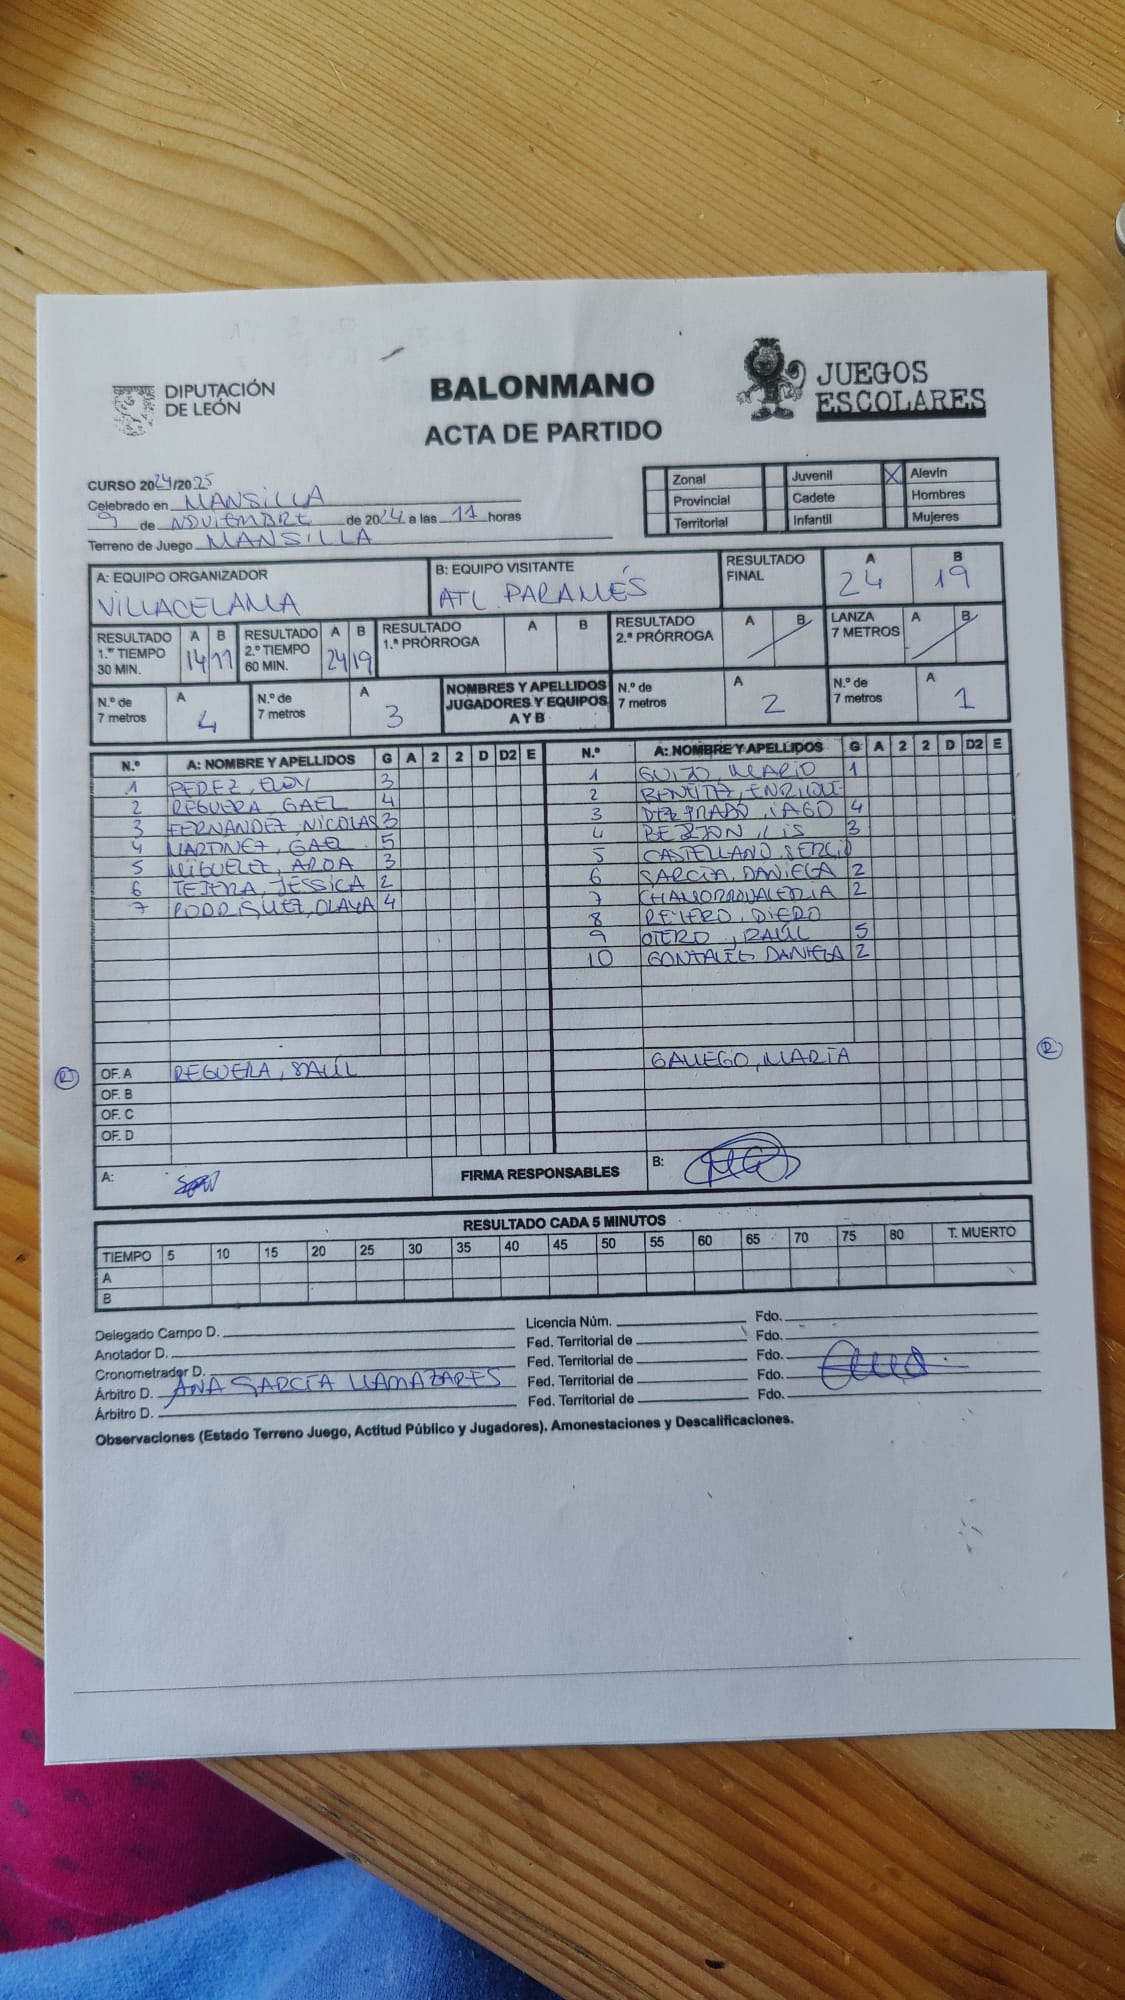 DIPUTACIÓN
DE LEÓN
BALONMANO
ACTA DE PARTIDO
JUEGOS
ESCOLARES
CURSO 2024/2025
Celebrado en MANSILLA
9 de NOVIEMBRE de 2024 a las 11 horas
Terreno de Juego MANSILLA
Zonal Juvenil X Alevín
Provincial Cadete Hombres
Territorial Infantil Mujeres
A: EQUIPO ORGANIZADOR
VILLACELAMA
B: EQUIPO VISITANTE
ATL. PARAMÉS
RESULTADO FINAL A 24 B 19
RESULTADO 1.er TIEMPO 30 MIN. A 14 B 11
RESULTADO 2.º TIEMPO 60 MIN. A 24 B 19
RESULTADO 1.ª PRÓRROGA A B
RESULTADO 2.ª PRÓRROGA A B
LANZA 7 METROS A B
N.º de 7 metros A 4
N.º de 7 metros A 3
NOMBRES Y APELLIDOS JUGADORES Y EQUIPOS A Y B
N.º de 7 metros A 2
N.º de 7 metros A 1
N.º A: NOMBRE Y APELLIDOS G A 2 2 D D2 E
1 PEREZ, ELOY 3
2 REGUERA, GAEL 4
3 FERNANDEZ, NICOLAS 3
4 MARTINEZ, GAEL 5
5 MIGUELEZ, AROA 3
6 TEJERA, JESSICA 2
7 RODRIGUEZ, OLAYA 4
OF. A REGUERA, SAÚL
OF. B
OF. C
OF. D
N.º A: NOMBRE Y APELLIDOS G A 2 2 D D2 E
1 MARIO 1
2 BENITEZ, ENRIQUE
3 DEL PRADO, IAGO 4
4 3
5 CASTELLANO, SERGIO
6 GARCÍA, DANIELA 2
7 CHAMORRO VALERIA 2
8
9 OTERO, RAÚL 5
10 GONZALEZ DANIELA 2
GALLEGO, MARÍA
R
R
A:
FIRMA RESPONSABLES
B:
RESULTADO CADA 5 MINUTOS
TIEMPO 5 10 15 20 25 30 35 40 45 50 55 60 65 70 75 80 T. MUERTO
A
B
Delegado Campo D. Licencia Núm. Fdo.
Anotador D. Fed. Territorial de Fdo.
Cronometrador D. Fed. Territorial de Fdo.
Árbitro D. ANA GARCÍA LLAMAZARES Fed. Territorial de Fdo.
Árbitro D. Fed. Territorial de Fdo.
Observaciones (Estado Terreno Juego, Actitud Público y Jugadores). Amonestaciones y Descalificaciones.